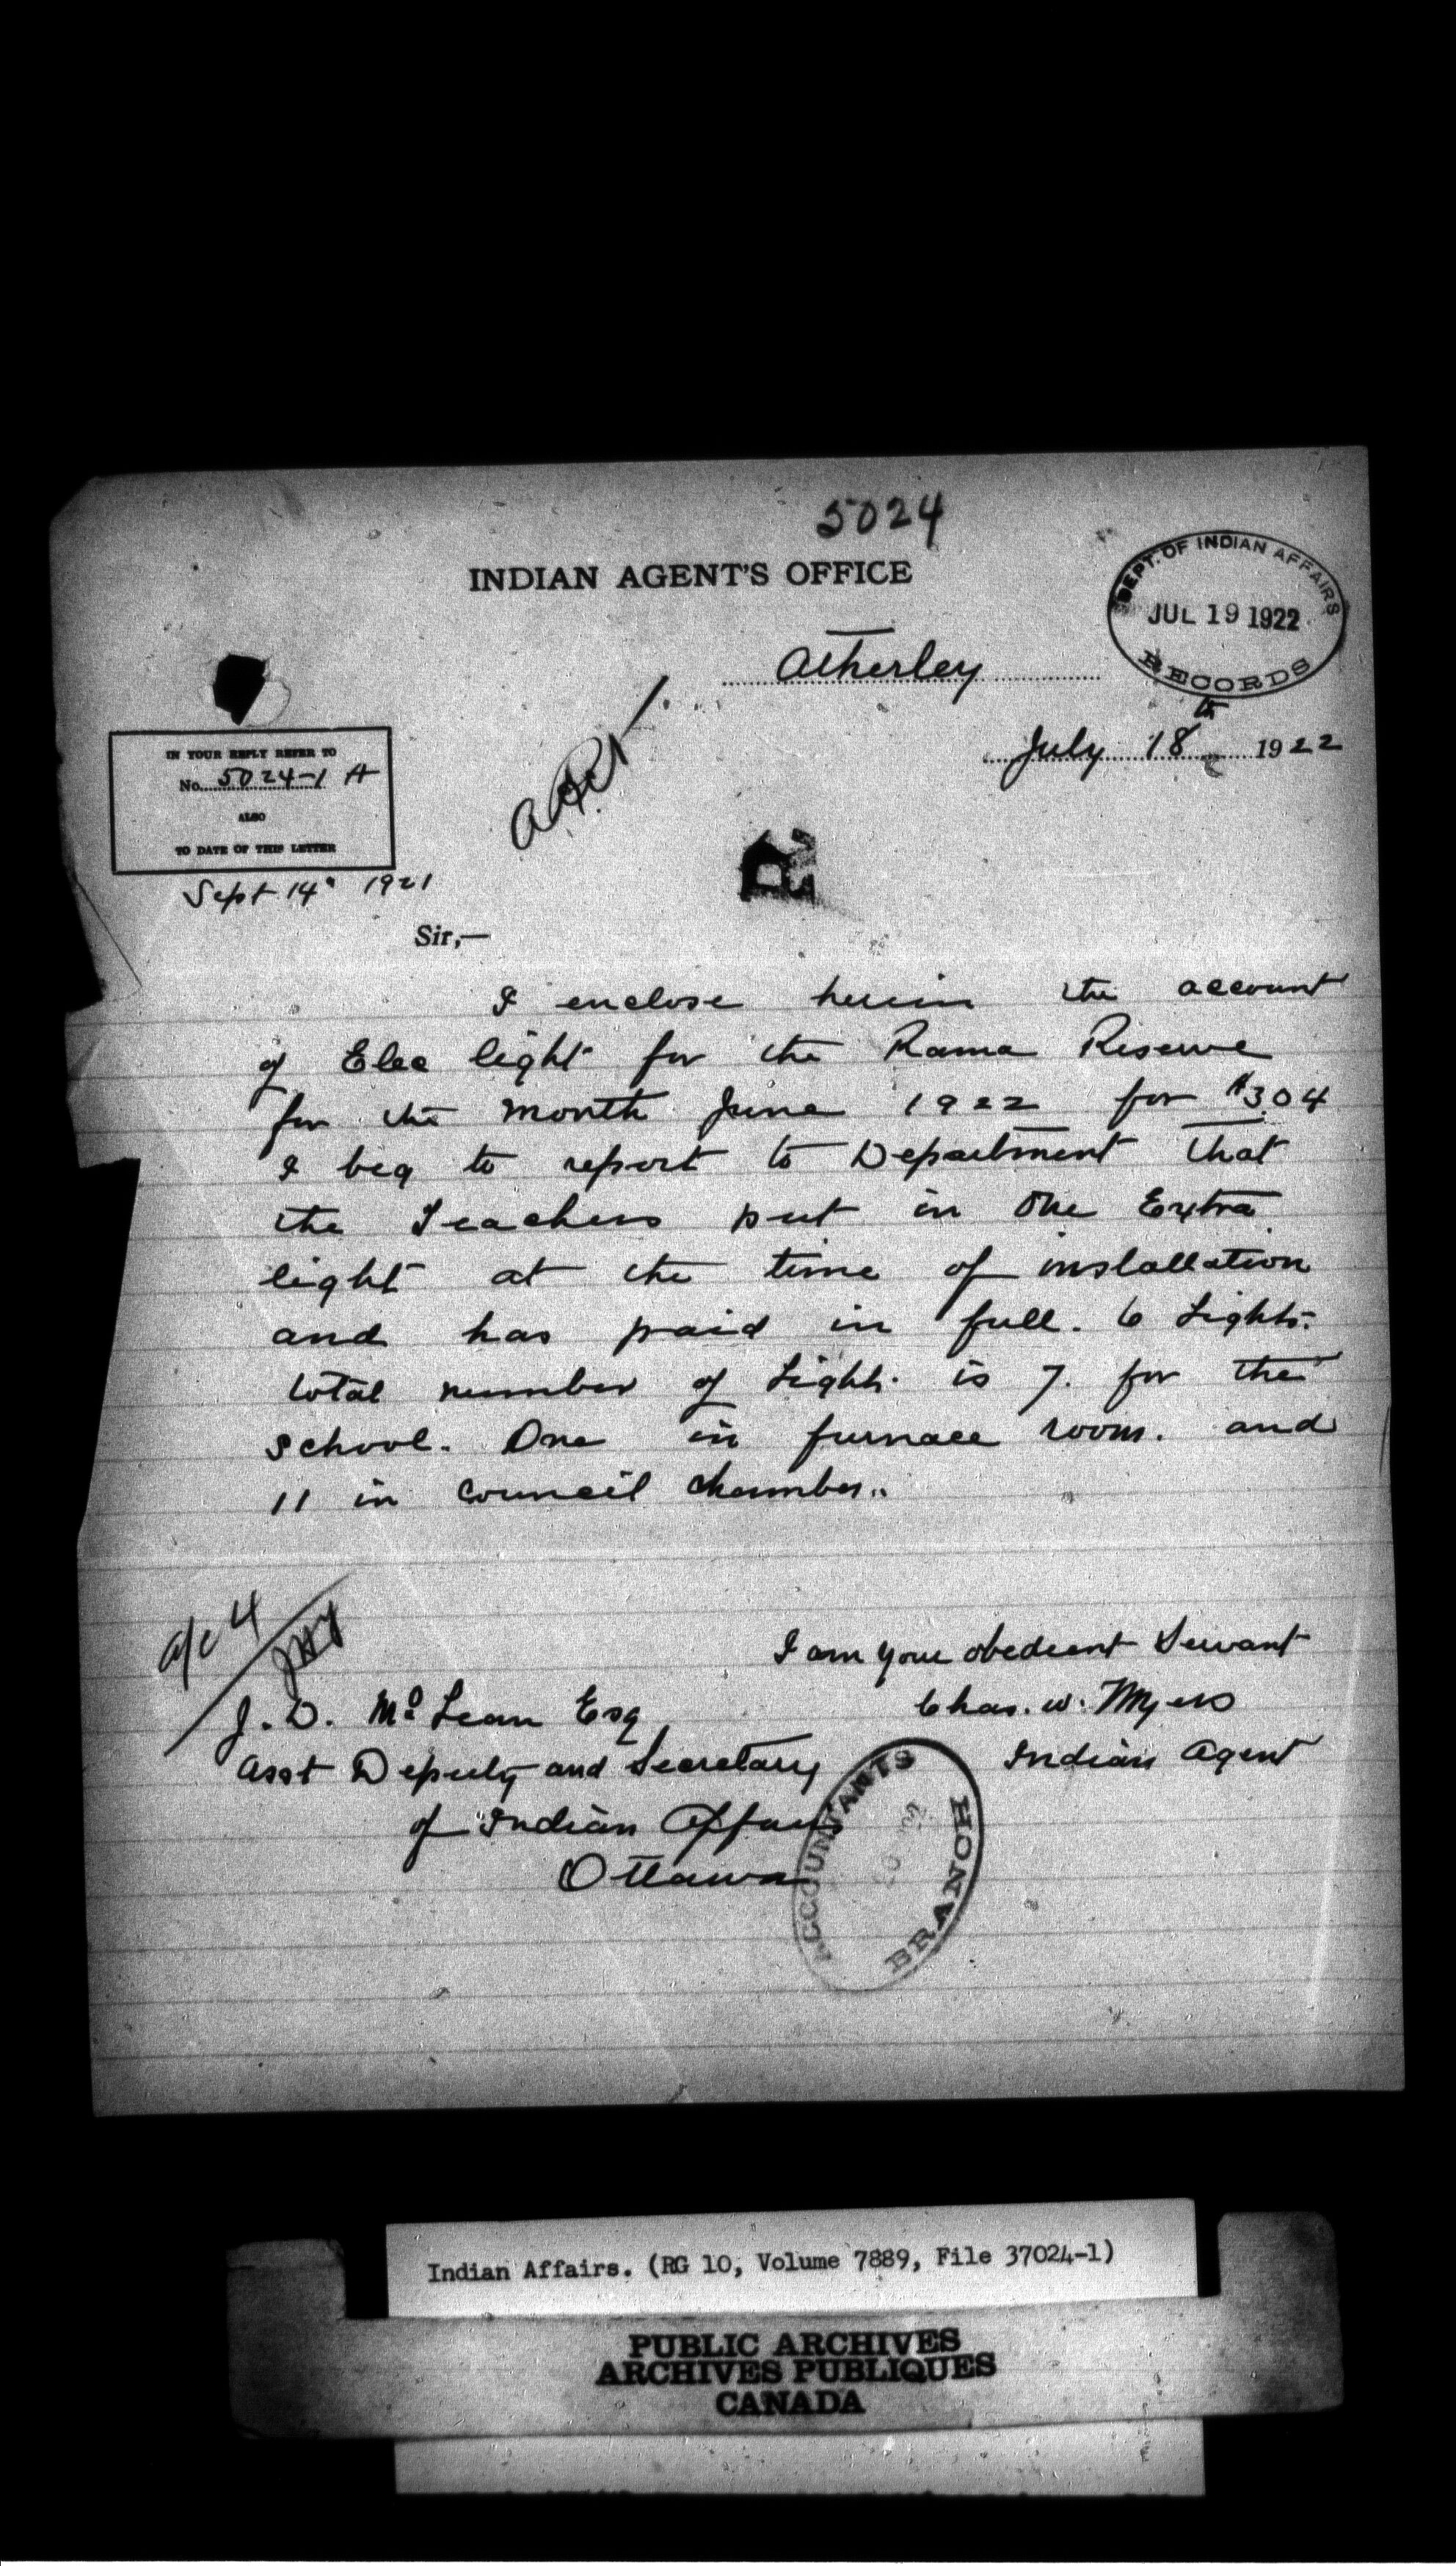 5024
INDIAN AGENT'S OFFICE
DEPT. OF INDIAN AFFAIRS
JUL 19 1922
RECORDS
Atherley
July 18th 1922
IN YOUR REPLY REFER TO
No. 5024-1 A
ALSO
TO DATE OF THIS LETTER
Sept 14" 1921
R
Sir,—
I enclose herein the account
of Elec light for the Rama Reserve
for the month June 1922 for $3.04
I beg to report to Department that
the Teachers put in One Extra
light at the time of installation
and has paid in full. 6 Lights.
total number of Lights. is 7. for the
school. One in furnace room. and
11 in Council Chamber..
a/c 4
I am your obedient Servant
J. D. McLean Esq
Chas. W. Myers
Asst Deputy and Secretary
Indian Agent
of Indian Affairs
Ottawa
ACCOUNTANTS
BRANCH
Indian Affairs. (RG 10, Volume 7889, File 37024-1)
PUBLIC ARCHIVES
ARCHIVES PUBLIQUES
CANADA